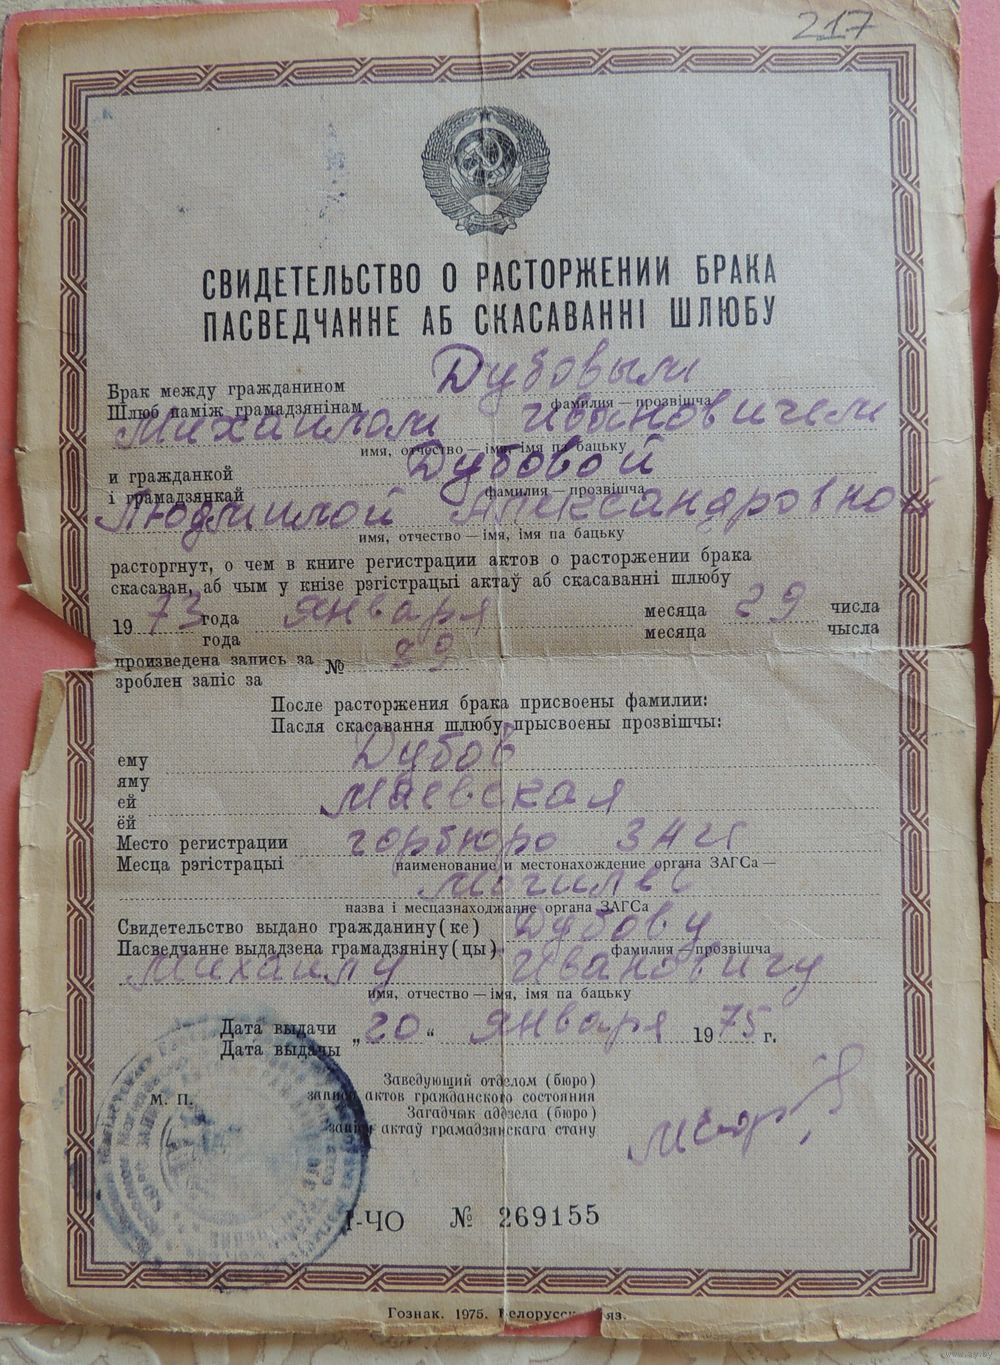 217
СВИДЕТЕЛЬСТВО О РАСТОРЖЕНИИ БРАКА
ПАСВЕДЧАННЕ АБ СКАСАВАННІ ШЛЮБУ
Брак между гражданином Дубовым
Шлюб паміж грамадзянінам фамилия — прозвішча
Михаилом Ивановичем
имя, отчество — імя, імя па бацьку
и гражданкой Дубовой
і грамадзянкай фамилия — прозвішча
Людмилой Александровной
имя, отчество — імя, імя па бацьку
расторгнут, о чем в книге регистрации актов о расторжении брака
скасаван, аб чым у кнізе рэгістрацыі актаў аб скасаванні шлюбу
1973 года января месяца 29 числа
года месяца чысла
произведена запись за № 89
зроблен запіс за
После расторжения брака присвоены фамилии:
Пасля скасавання шлюбу прысвоены прозвішчы:
ему Дубов
яму
ей Маевская
ёй
Место регистрации горбюро ЗАГС
Месца рэгістрацыі наименование и местонахождение органа ЗАГСа —
назва і месцазнаходжанне органа ЗАГСа
Свидетельство выдано гражданину(ке) Дубову
Пасведчанне выдадзена грамадзяніну(цы) фамилия — прозвішча
Михаилу Ивановичу
имя, отчество — імя, імя па бацьку
Дата выдачи „20“ января 1975 г.
Дата выдачы
Заведующий отделом (бюро)
М. П. записи актов гражданского состояния
Загадчык аддзела (бюро)
запісу актаў грамадзянскага стану
І-ЧО № 269155
Гознак. 1975.